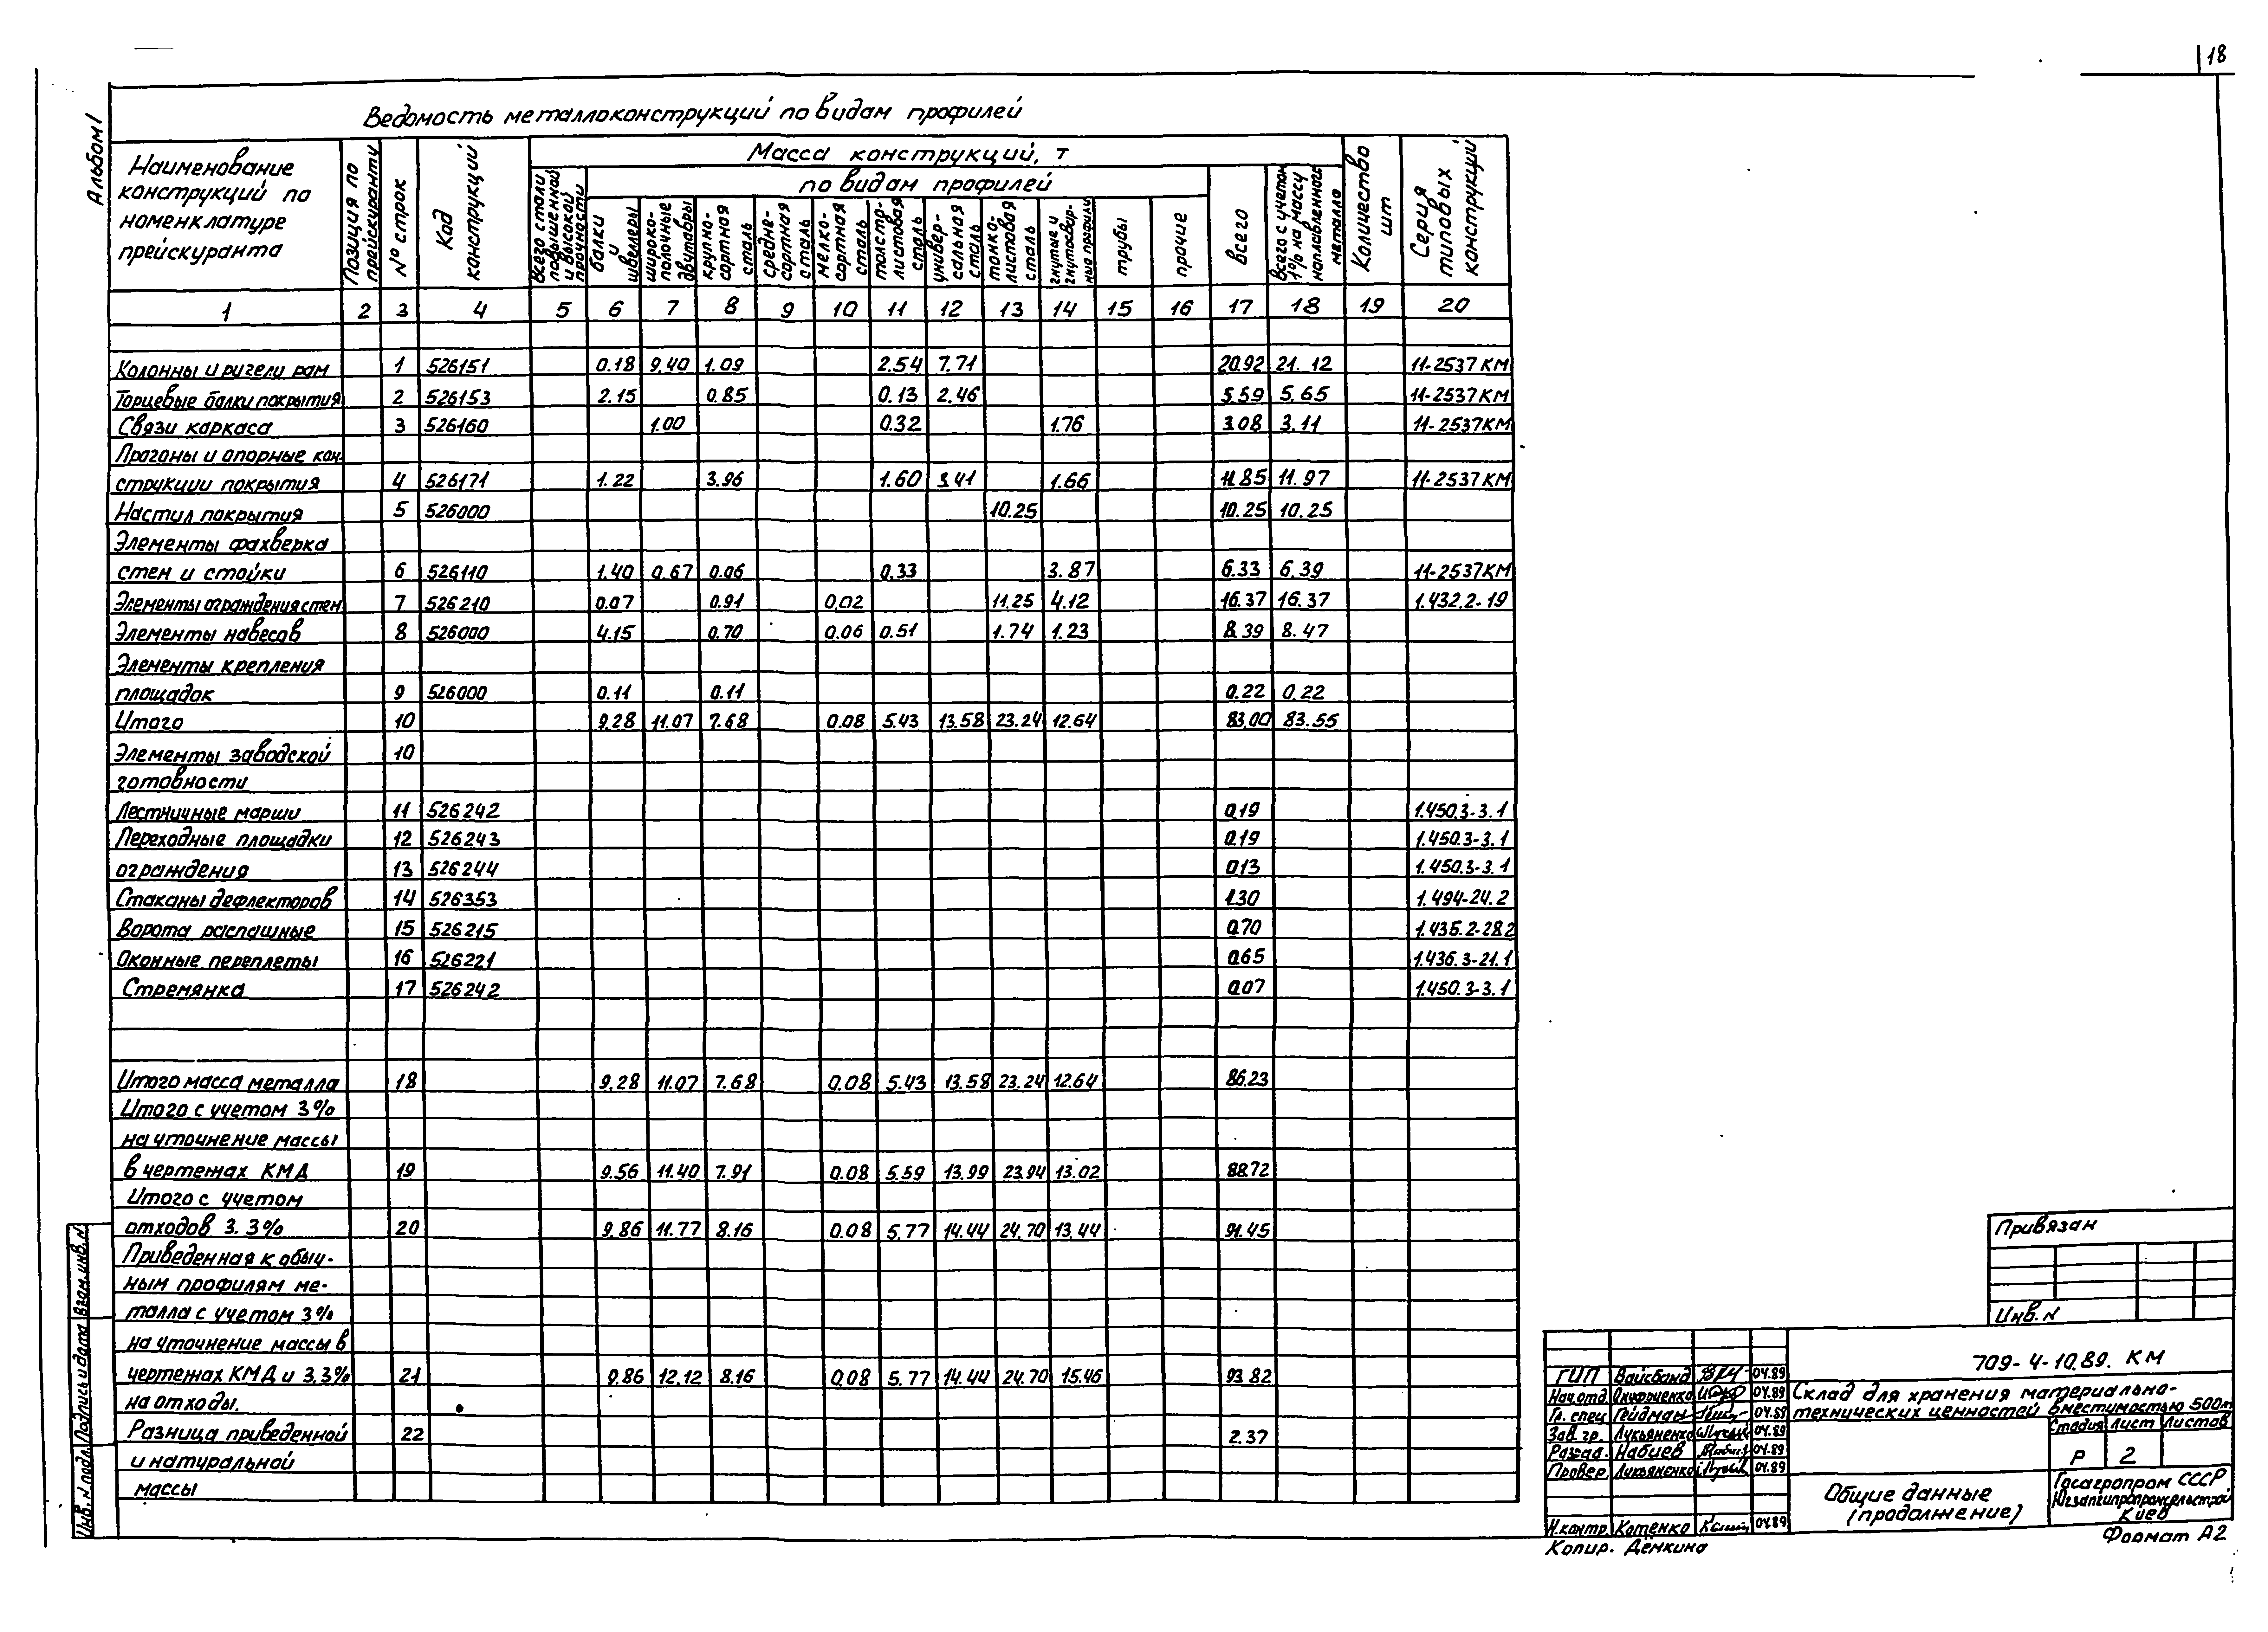 18
Альбом I
Ведомость металлоконструкций по видам профилей
Наименование конструкций по номенклатуре прейскуранта
Позиция по прейскуранту
№ строк
Код конструкций
Масса конструкций, т
Всего стали повышенной и высокой прочности
по видам профилей
балки и швеллеры
широкополочные двутавры
крупносортная сталь
среднесортная сталь
мелкосортная сталь
толстолистовая сталь
универсальная сталь
тонколистовая сталь
гнутые и гнутосварные профили
трубы
прочие
Всего
Всего с учетом 1% на массу наплавленного металла
Количество шт
Серия типовых конструкций
1 2 3 4 5 6 7 8 9 10 11 12 13 14 15 16 17 18 19 20
Колонны и ригели рам 1 526151 0.18 9.40 1.09 2.54 7.71 20.92 21.12 11-2537 КМ
Торцевые балки покрытия 2 526153 2.15 0.85 0.13 2.46 5.59 5.65 11-2537 КМ
Связи каркаса 3 526160 1.00 0.32 1.76 3.08 3.11 11-2537 КМ
Прогоны и опорные кон-
струкции покрытия 4 526171 1.22 3.96 1.60 3.41 1.66 11.85 11.97 11-2537 КМ
Настил покрытия 5 526000 10.25 10.25 10.25
Элементы фахверка
стен и стойки 6 526110 1.40 0.67 0.06 0.33 3.87 6.33 6.39 11-2537 КМ
Элементы ограждения стен 7 526210 0.07 0.91 0.02 11.25 4.12 16.37 16.37 1.432.2-19
Элементы навесов 8 526000 4.15 0.70 0.06 0.51 1.74 1.23 8.39 8.47
Элементы крепления
площадок 9 526000 0.11 0.11 0.22 0.22
Итого 10 9.28 11.07 7.68 0.08 5.43 13.58 23.24 12.64 83.00 83.55
Элементы заводской 10
готовности
Лестничные марши 11 526242 0.19 1.450.3-3.1
Переходные площадки 12 526243 0.19 1.450.3-3.1
ограждения 13 526244 0.13 1.450.3-3.1
Стаканы дефлекторов 14 526353 1.30 1.494-24.2
Ворота распашные 15 526215 0.70 1.435.2-28.2
Оконные переплеты 16 526221 0.65 1.436.3-21.1
Стремянка 17 526242 0.07 1.450.3-3.1
Итого масса металла 18 9.28 11.07 7.68 0.08 5.43 13.58 23.24 12.64 86.23
Итого с учетом 3%
на уточнение массы
в чертежах КМД 19 9.56 11.40 7.91 0.08 5.59 13.99 23.94 13.02 88.72
Итого с учетом
отходов 3.3% 20 9.86 11.77 8.16 0.08 5.77 14.44 24.70 13.44 91.45
Приведенная к обыч-
ным профилям ме-
талла с учетом 3%
на уточнение массы в
чертежах КМД и 3.3% 21 9.86 12.12 8.16 0.08 5.77 14.44 24.70 15.46 93.82
на отходы.
Разница приведенной 22 2.37
и натуральной
массы
Инв. N подл. Подпись и дата Взам. инв. N
Привязан
Инв. N
709-4-10.89. КМ
ГИП Вайсбанд 04.89
Нач. отд. Онуфриенко 04.89
Гл. спец Гейдман 04.89
Зав. гр. Лукьяненко 04.89
Разраб. Набиев 04.89
Провер. Лукьяненко 04.89
Н. контр. Котенко 04.89
Склад для хранения материально-
технических ценностей вместимостью 500т
Стадия Лист Листов
Р 2
Общие данные
(продолжение)
Госагропром СССР
Киев
Копир. Демкина
Формат А2